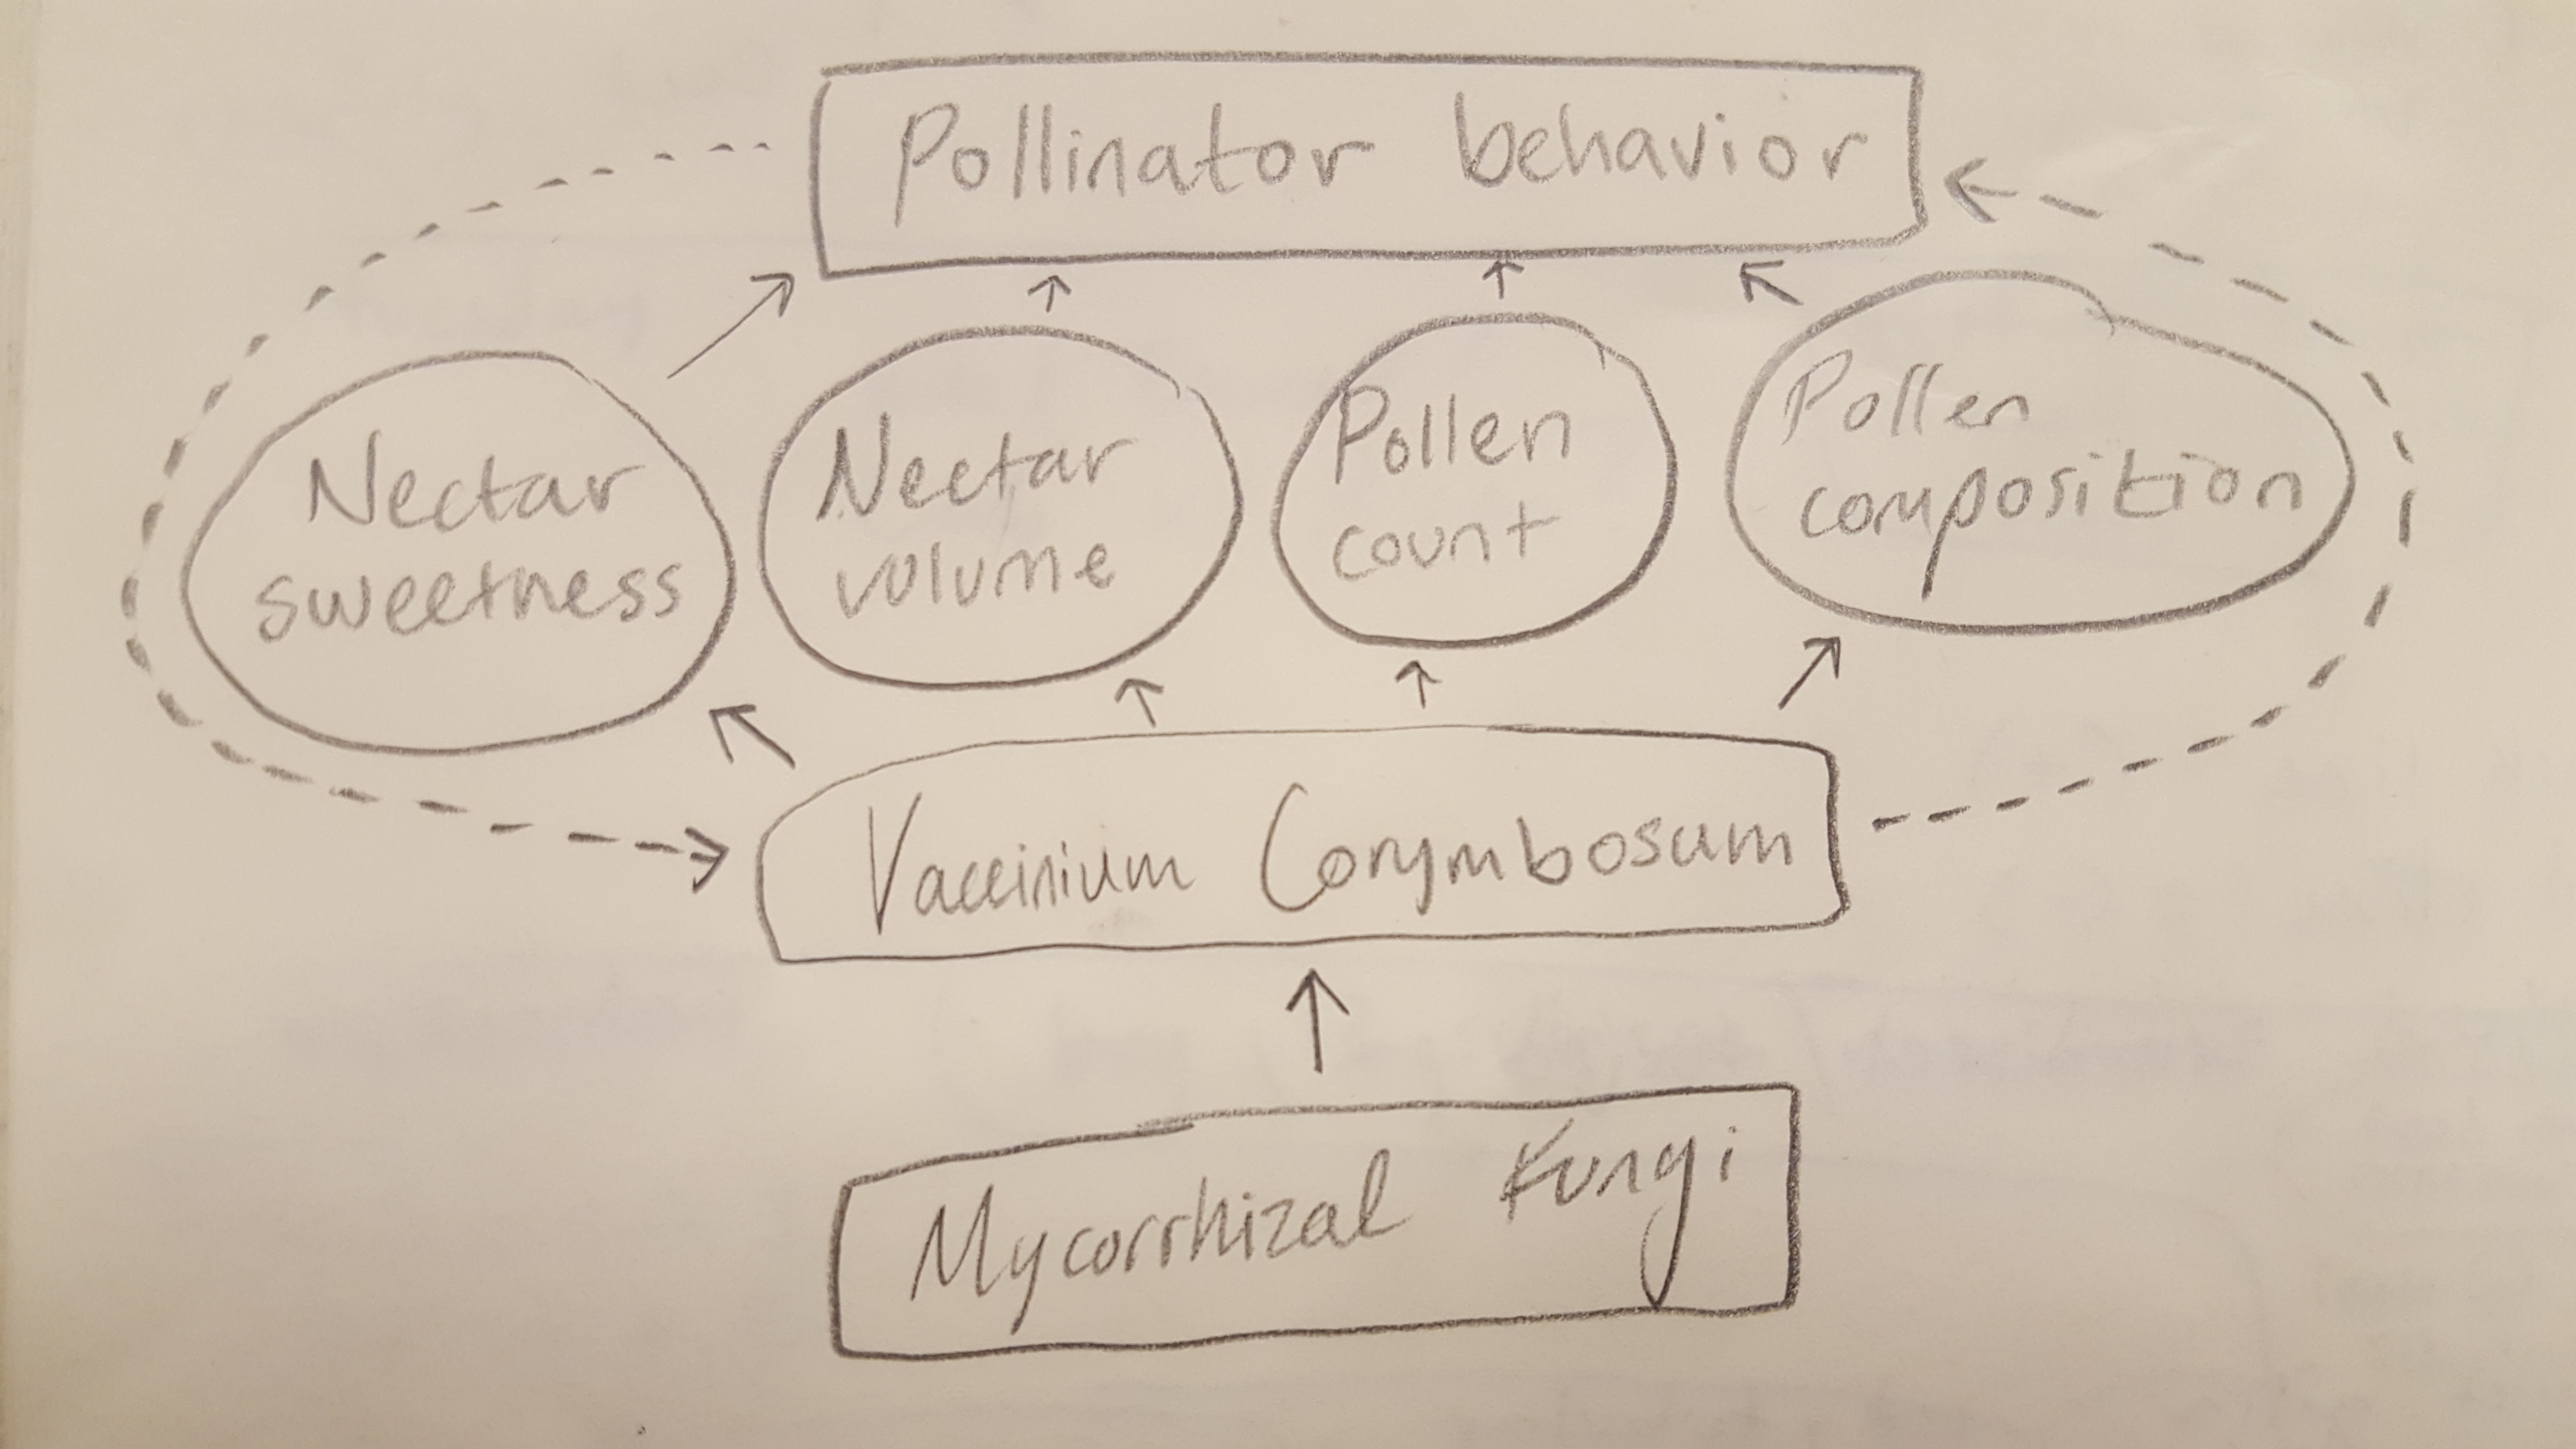 Pollinator behavior
Nectar
sweetness
Nectar
volume
Pollen
count
Pollen
composition
Vaccinium Corymbosum
Mycorrhizal Fungi